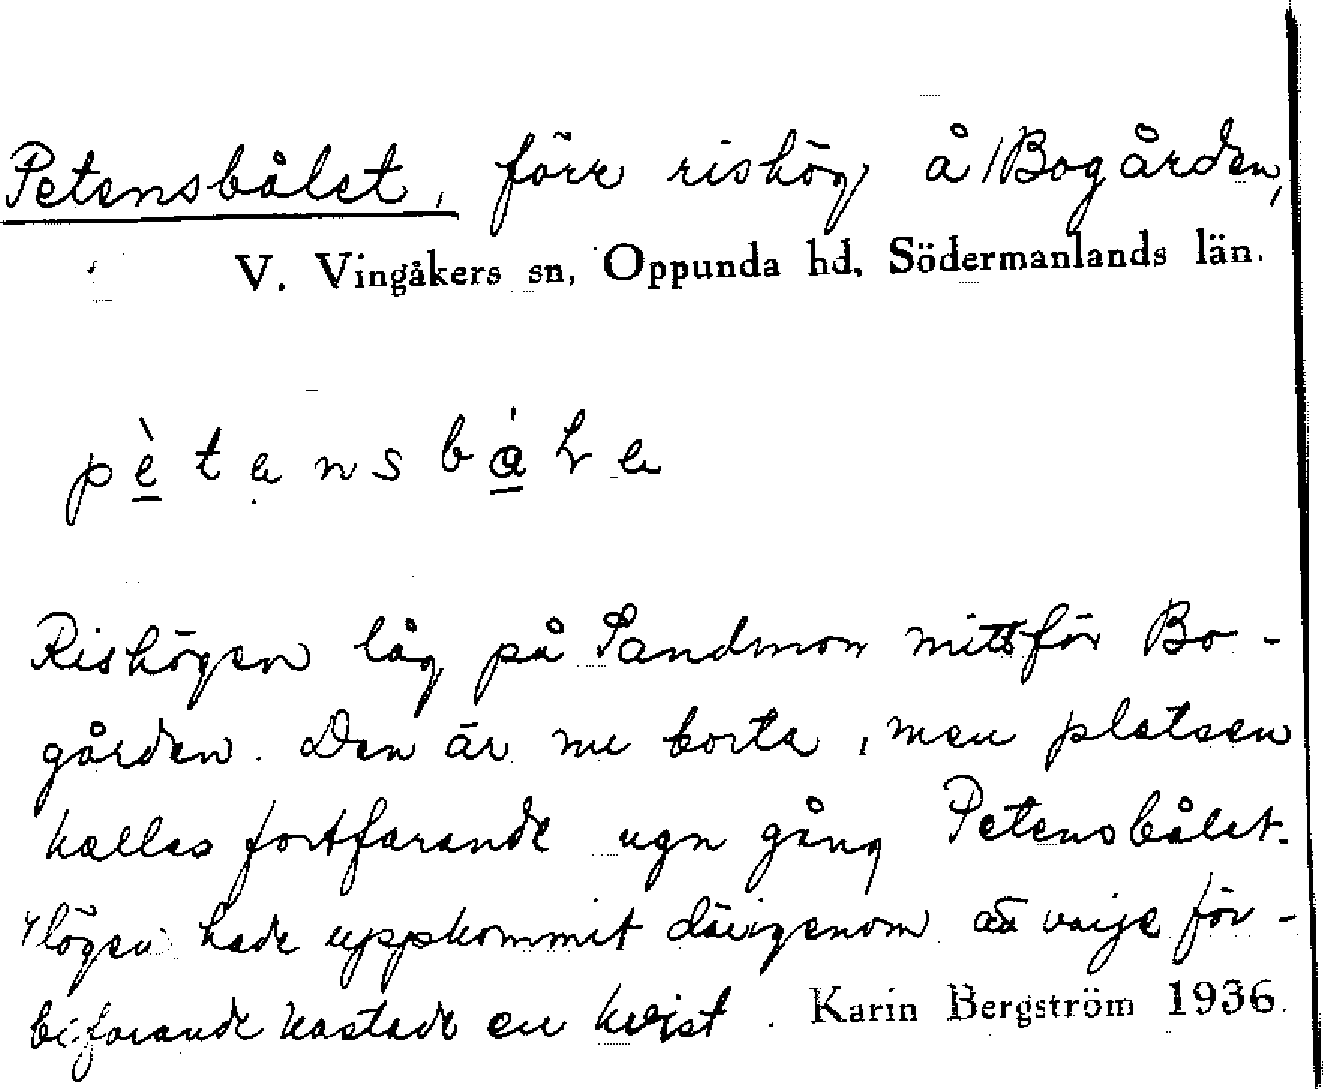 Petensbålet, förr rishög å Bogården,
V. Vingåkers sn, Oppunda hd, Södermanlands län.
pètensbǻle
Rishögen låg på Sandmon mittför Bo-
gården. Den är nu borta, men platsen
kallas fortfarande ngn gång Petensbålet.
Högen hade uppkommit därigenom att varje för-
bifarande kastade en kvist. Karin Bergström 1936.